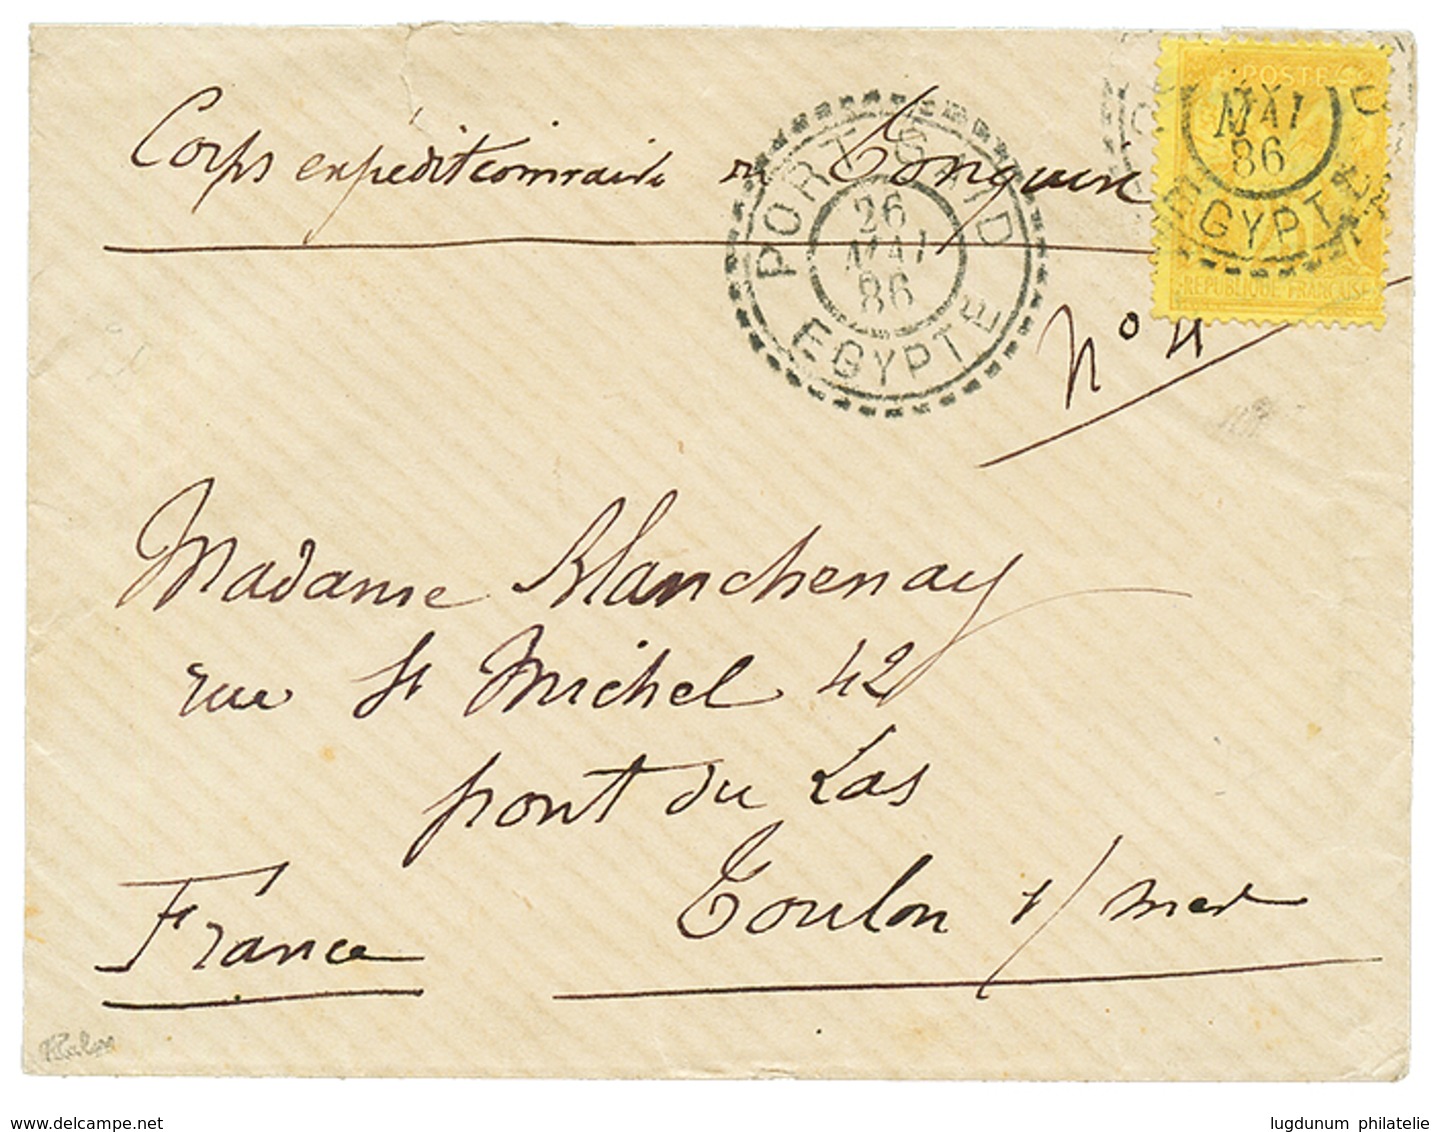 Corps expéditionnaire du Tonquin
PORT SAID
26
MAI
86
EGYPTE
POSTES
MAI
86
EGYPTE
REPUBLIQUE FRANCAISE
n° 4
Madame Blanchenay
rue St Michel 42
pont du Las
Toulon s/ mer
France
www.delcampe.net
lugdunum philatelie